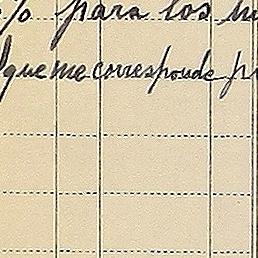 % para los
que me corresponde